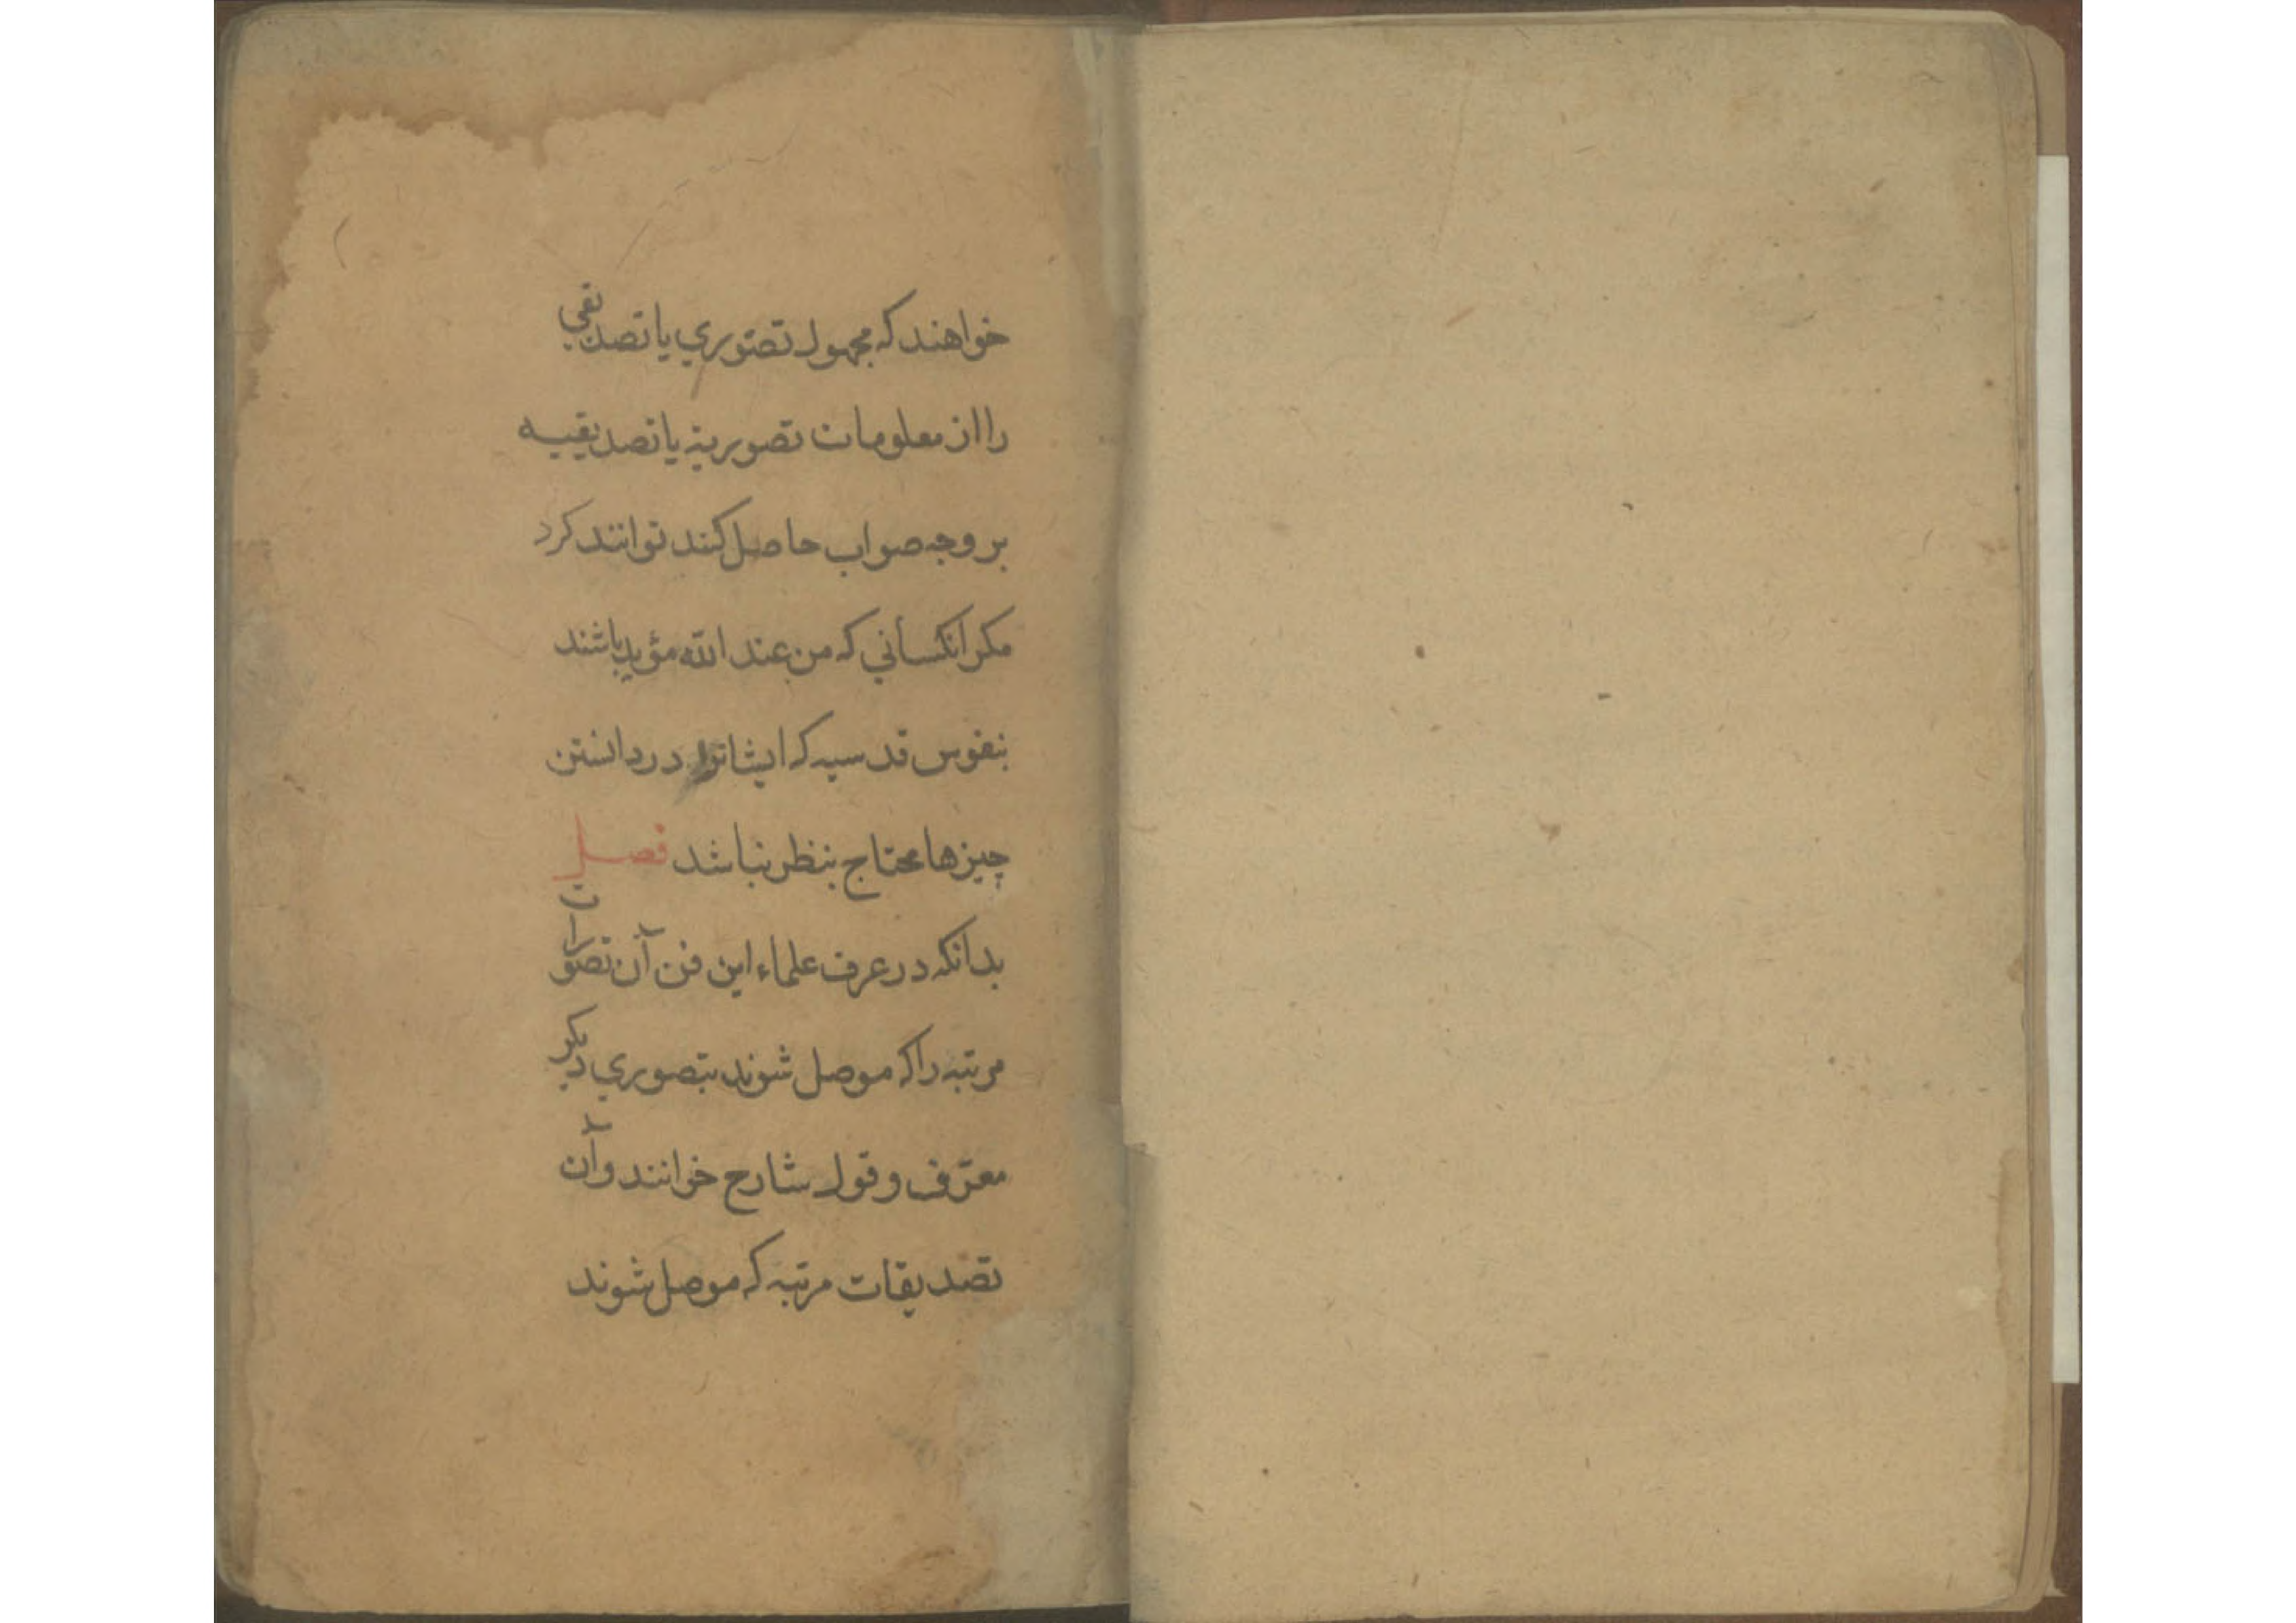 خواهند که مجهول تصّوري يا تصديقي
را از معلومات تصوريه يا تصديقيه
بر وجه صواب حاصل کنند توانند کرد
مکر آنکسانی که من عند اللّه مؤيد باشند
بنفوس قدسيه که ايشانرا در دانستن
چيزها محتاج بنظر نباشد فصل
بدانکه در عرف علماء اين فن آن تصورات
مرتبه را که موصل شوند بتصوري ديکر
معرّف و قول شارح خوانند و آن
تصديقات مرتبه که موصل شوند